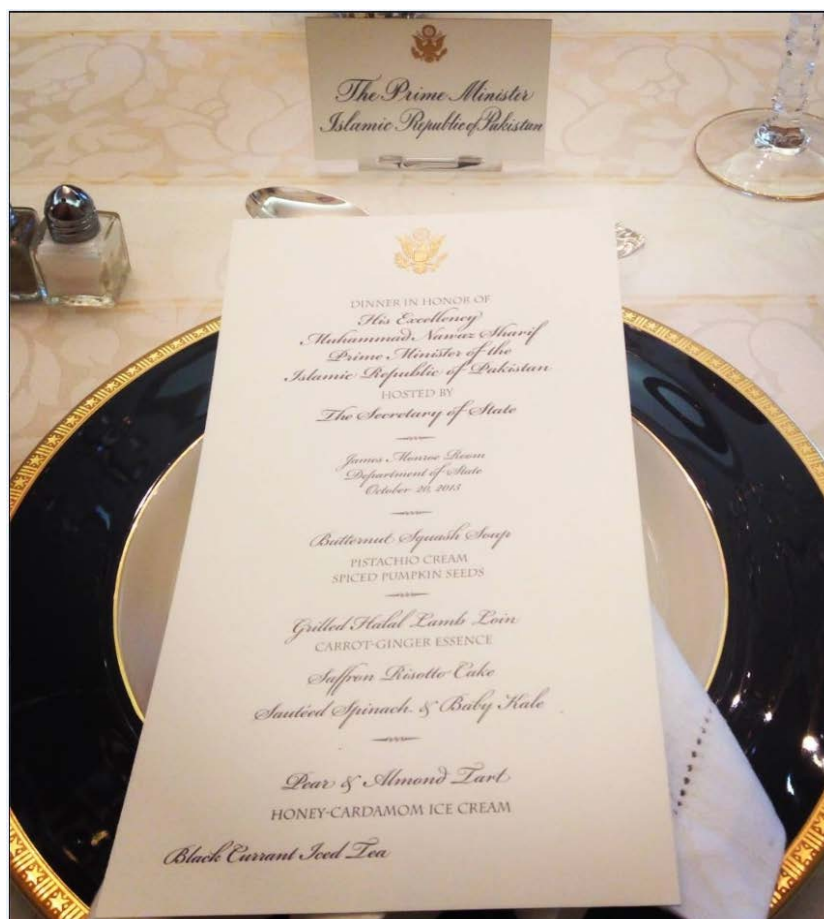 The Prime Minister
Islamic Republic of Pakistan
DINNER IN HONOR OF
His Excellency
Muhammad Nawaz Sharif
Prime Minister of the
Islamic Republic of Pakistan
HOSTED BY
The Secretary of State
James Monroe Room
Department of State
October 20, 2013
Butternut Squash Soup
PISTACHIO CREAM
SPICED PUMPKIN SEEDS
Grilled Halal Lamb Loin
CARROT-GINGER ESSENCE
Saffron Risotto Cake
Sautéed Spinach & Baby Kale
Pear & Almond Tart
HONEY-CARDAMOM ICE CREAM
Black Currant Iced Tea